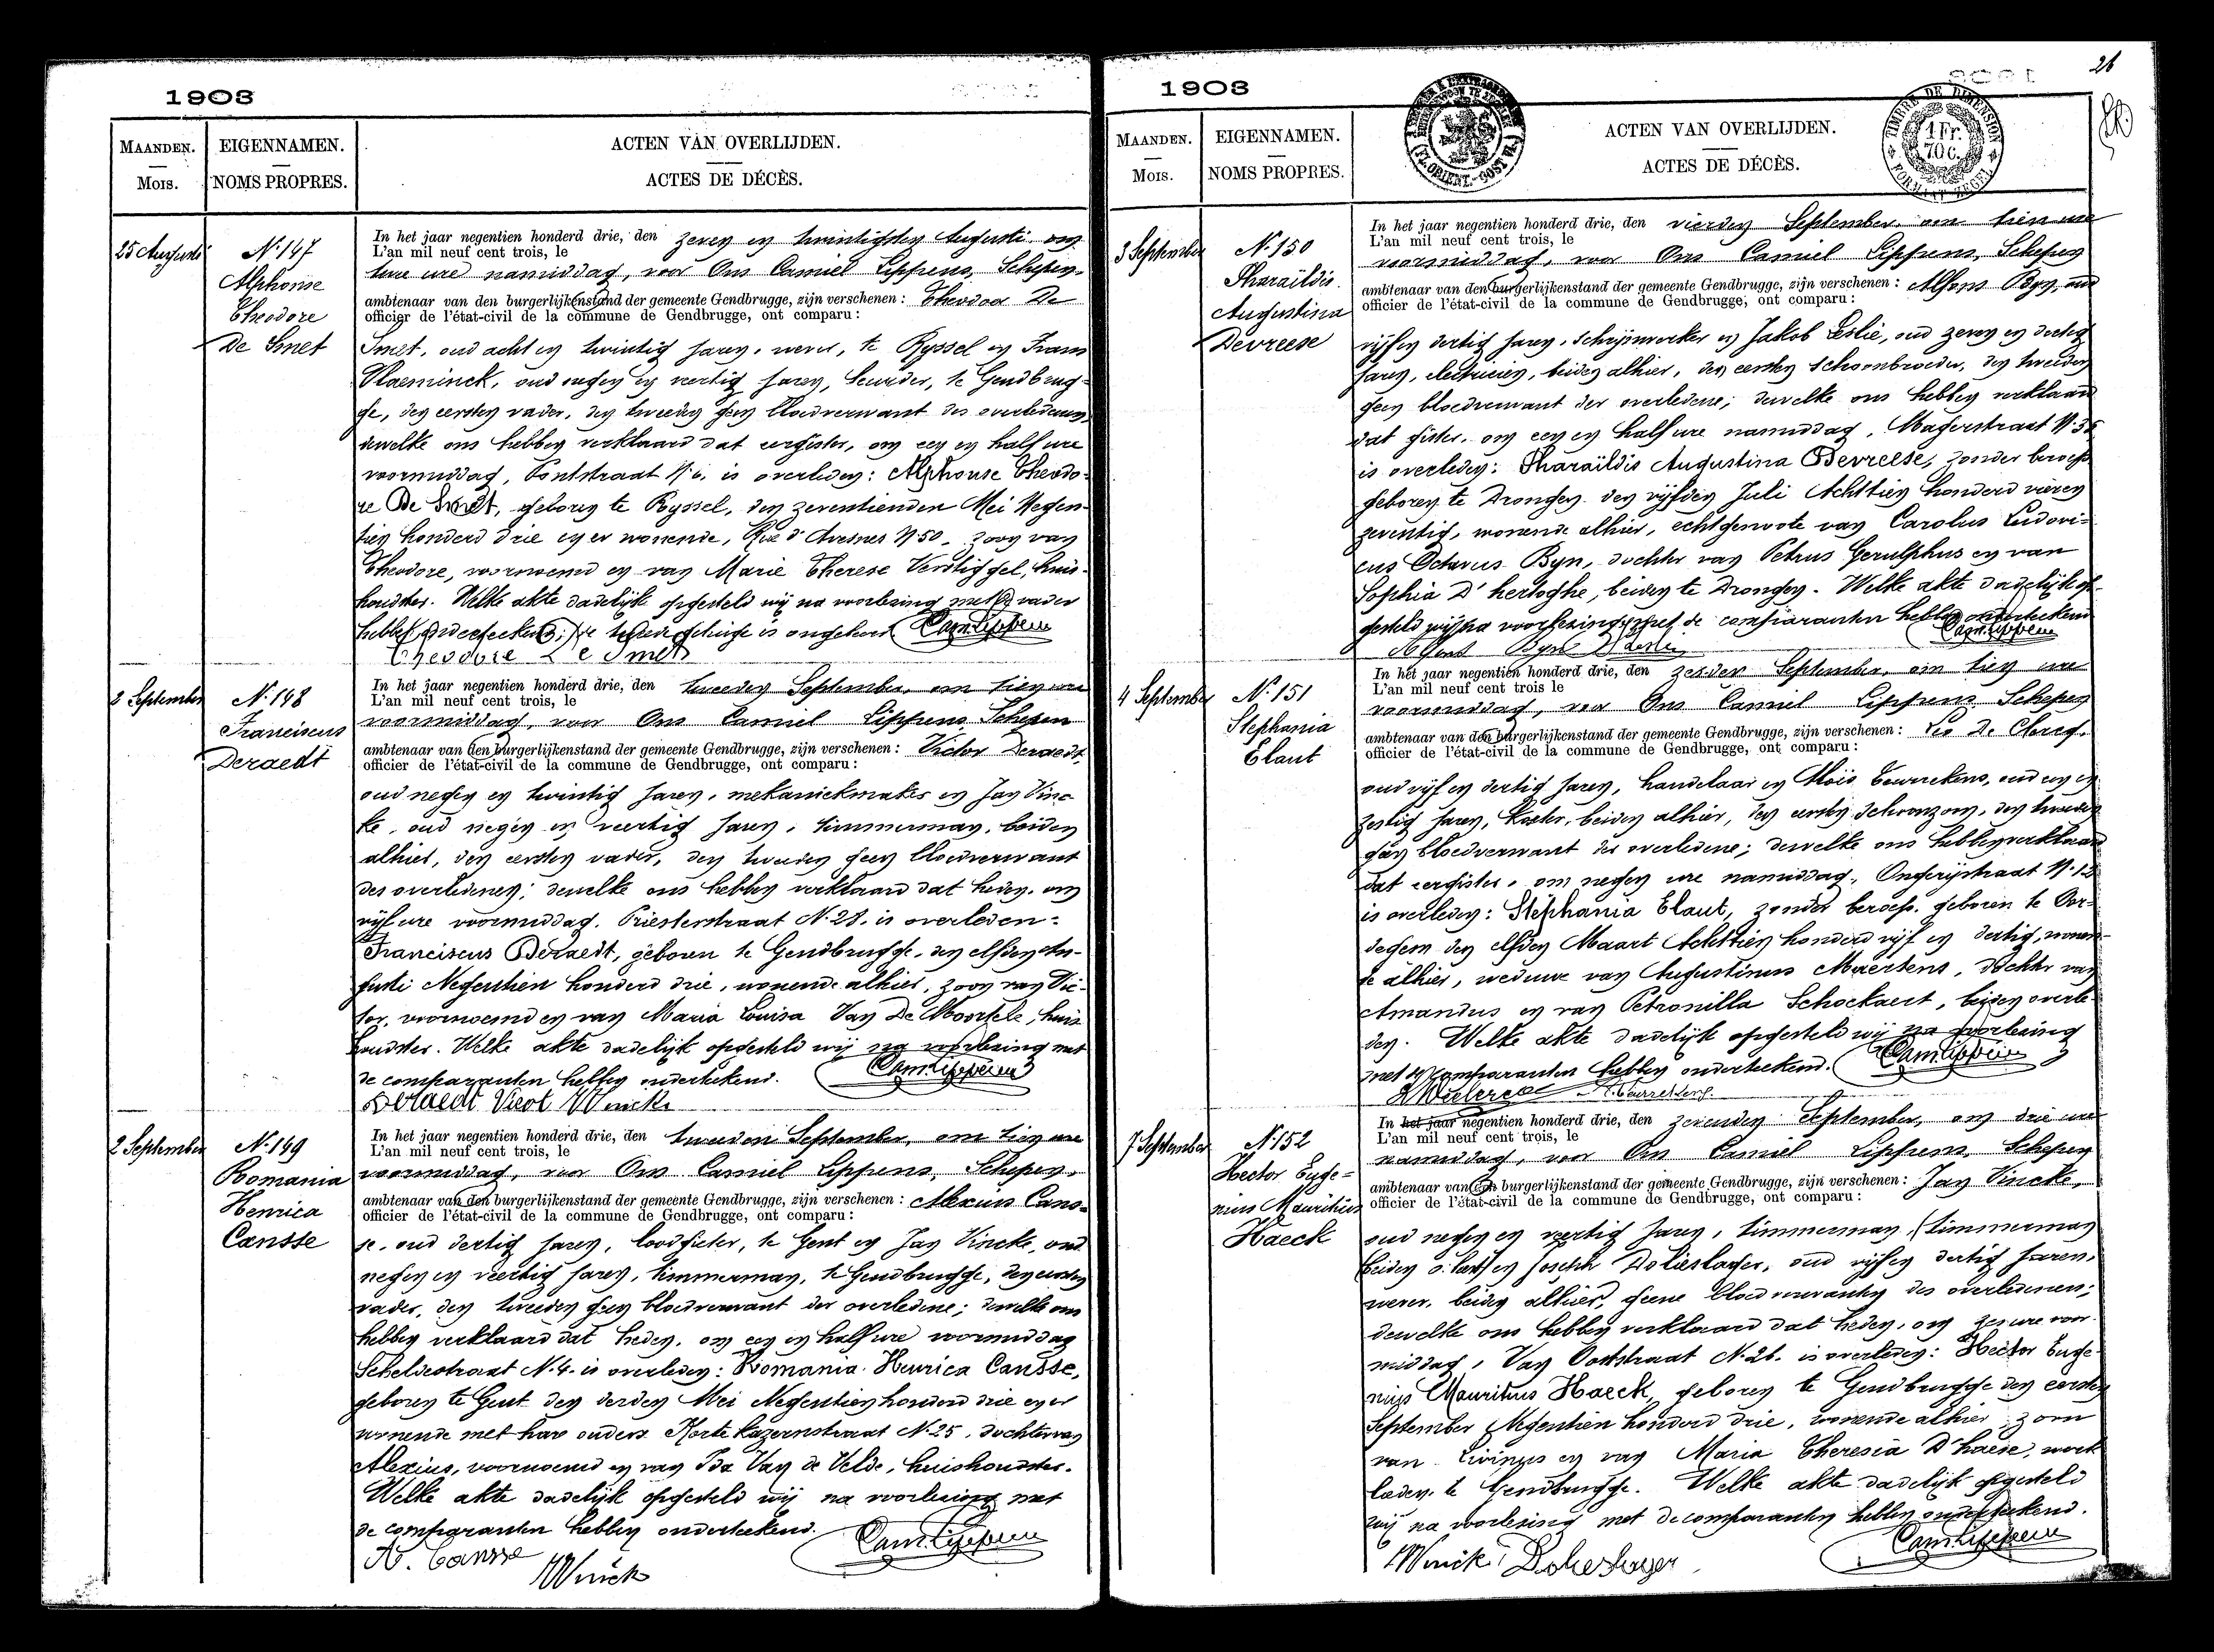 1903
MAANDEN.
Mois.
EIGENNAMEN.
NOMS PROPRES.
ACTEN VAN OVERLIJDEN.
ACTES DE DÉCÈS.
25 Augusti
N. 147
Alphonse
Theodore
De Smet
In het jaar negentien honderd drie, den zeven en twintigsten Augusti om
L'an mil neuf cent trois, le
twee ure namiddag, voor Ons Camiel Lippens, Schepen
ambtenaar van den burgerlijkenstand der gemeente Gendbrugge, zijn verschenen: Theodoor De
officier de l'état-civil de la commune de Gendbrugge, ont comparu:
Smet, oud acht en twintig jaren, wever, te Ryssel en Frans
Vlaeminck, oud negen en veertig jaren, te Gendbrug-
ge, den eersten vader, den tweeden geen bloedverwant des overledenen,
dewelke ons hebben verklaard dat eergister, om een en half ure
voormiddag, Pontstraat N. 6, is overleden: Alphonse Theodo-
re De Smet, geboren te Ryssel, den zeventienden Mei Negen-
tien honderd drie en er wonende, Rue d'Avesnes N 50, zoon van
Theodore, voornoemd en van Marie Therese Verstiggel, huis-
houdster. Welke akte dadelijk opgesteld wij na voorlezing met de vader
hebben onderteekend; de tweede getuige is ongeleerd Cam. Lippens
Theodore De Smet
2 September
N. 148
Franciscus
Deraedt
In het jaar negentien honderd drie, den tweeden September, om tien ure
L'an mil neuf cent trois, le
voormiddag, voor Ons Camiel Lippens Schepen
ambtenaar van den burgerlijkenstand der gemeente Gendbrugge, zijn verschenen: Victor Deraedt,
officier de l'état-civil de la commune de Gendbrugge, ont comparu:
oud negen en twintig jaren, mekaniekmaker en Jan Vinc-
ke, oud negen en veertig jaren, timmerman, beiden
alhier, den eersten vader, den tweeden geen bloedverwant
des overledenen; dewelke ons hebben verklaard dat heden, om
vijf ure voormiddag, Priesterstraat N. 28, is overleden:
Franciscus Deraedt, geboren te Gendbrugge, den elfden Au-
gusti Negentien honderd drie, wonende alhier, zoon van Vic-
tor, voornoemd en van Maria Louisa Van De Moortele, huis
houdster. Welke akte dadelijk opgesteld wij na voorlezing met
de comparanten hebben onderteekend. Cam. Lippens
Deraedt Vicot J Vincke
2 September
N. 149
Romania
Henrica
Cansse
In het jaar negentien honderd drie, den tweeden September, om tien ure
L'an mil neuf cent trois, le
voormiddag, voor Ons Camiel Lippens, Schepen,
ambtenaar van den burgerlijkenstand der gemeente Gendbrugge, zijn verschenen: Alexius Cans-
officier de l'état-civil de la commune de Gendbrugge, ont comparu:
se, oud dertig jaren, loodgieter, te Gent en Jan Vincke, oud
negen en veertig jaren, timmerman, te Gendbrugge, den eersten
vader, den tweeden geen bloedverwant der overledene; dewelke ons
hebben verklaard dat heden, om een en half ure voormiddag
Scheldestraat N. 4. is overleden: Romania Henrica Cansse,
geboren te Gent den derden Mei Negentien honderd drie en er
wonende met hare ouders Korte Kazernstraat N. 25, dochter van
Alexius, voornoemd en van Ida Van de Velde, huishoudster.
Welke akte dadelijk opgesteld wij na voorlezing met
de comparanten hebben onderteekend. Cam. Lippens
A. Cansse
J Vincke
1903
26
MAANDEN.
Mois.
EIGENNAMEN.
NOMS PROPRES.
ACTEN VAN OVERLIJDEN.
ACTES DE DÉCÈS.
TIMBRE DE DIMENSION
1 Fr.
70 c.
FORMAAT ZEGEL
(FL. ORIENT.-OOST VL.)
3 September
N. 150
Pharaïldis
Augustina
Devreese
In het jaar negentien honderd drie, den vierden September, om tien ure
L'an mil neuf cent trois, le
voormiddag, voor Ons Camiel Lippens, Schepen
ambtenaar van den burgerlijkenstand der gemeente Gendbrugge, zijn verschenen: Alfons Byn, oud
officier de l'état-civil de la commune de Gendbrugge, ont comparu:
vijf en dertig jaren, schrijnwerker en Jakob Leslie, oud zeven en dertig
jaren, electricien, beiden alhier, den eersten schoonbroeder, den tweeden
geen bloedverwant der overledene; dewelke ons hebben verklaard
dat gister, om een en half ure namiddag, Magerstraat N. 35
is overleden: Pharaïldis Augustina Devreese, zonder beroep
geboren te Drongen den vijfden Juli Achttien honderd vier en
zeventig, wonende alhier, echtgenoote van Carolus Ludovi-
cus Octavus Byn, dochter van Petrus Gerulphus en van
Sophia D'hertoghe, beiden te Drongen. Welke akte dadelijk op-
gesteld wij na voorlezing met de comparanten hebben onderteekend
Cam. Lippens
Alfons Byn J Leslie
4 September
N. 151
Stephania
Elaut
In het jaar negentien honderd drie, den zesden September, om tien ure
L'an mil neuf cent trois le
voormiddag, voor Ons Camiel Lippens Schepen
ambtenaar van den burgerlijkenstand der gemeente Gendbrugge, zijn verschenen: Leo De Clercq,
officier de l'état-civil de la commune de Gendbrugge, ont comparu:
oud vijf en dertig jaren, handelaar en Aloïs Teurrekens, oud een en
zestig jaren, koster, beiden alhier, den eersten schoonzoon, den tweeden
geen bloedverwant der overledene; dewelke ons hebben verklaard
dat eergister, om negen ure namiddag, Ongerijstraat N. 12
is overleden: Stephania Elaut, zonder beroep, geboren te Oor-
degem den elfden Maart Achttien honderd vijf en dertig, wonen-
de alhier, weduwe van Augustinus Maertens, dochter van
Amandus en van Petronilla Schockaert, beiden overle-
den. Welke akte dadelijk opgesteld wij na voorlezing
met de comparanten hebben onderteekend. Cam. Lippens
7 September
N. 152
Hector Euge=
nius Mauritius
Haeck
In het jaar negentien honderd drie, den zevenden September, om drie ure
L'an mil neuf cent trois, le
namiddag, voor Ons Camiel Lippens, Schepen
ambtenaar van den burgerlijkenstand der gemeente Gendbrugge, zijn verschenen: Jan Vincke,
officier de l'état-civil de la commune de Gendbrugge, ont comparu:
oud negen en veertig jaren, timmerman, (timmerman
beiden en Joseph Dolieslager, oud vijf en dertig jaren,
wever, beiden alhier, geene bloedverwanten des overledenen;
dewelke ons hebben verklaard dat heden, om zes ure voor-
middag, Van Ooststraat N. 26. is overleden: Hector Euge-
nius Mauritius Haeck, geboren te Gendbrugge den eersten
September Negentien honderd drie, wonende alhier, zoon
van Livinus en van Maria Theresia D'haese, werk
lieden, te Gendbrugge. Welke akte dadelijk opgesteld
wij na voorlezing met de comparanten hebben onderteekend.
Cam. Lippens
J Vincke Dolieslager